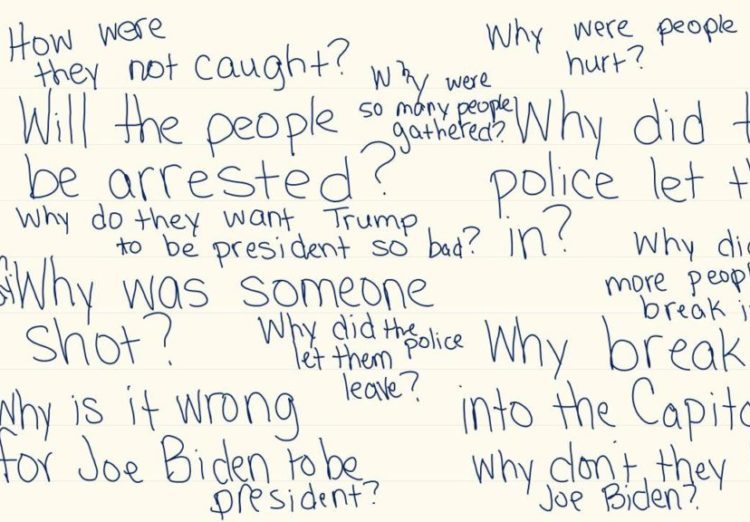 How were
they not caught?
Why were people
hurt?
Why were
so many people
gathered?
Will the people
be arrested?
Why did
police let
in?
Why do they want Trump
to be president so bad?
Why did
more people
break
Why was someone
shot?
Why did the police
let them
leave?
Why break
into the Capitol
Why is it wrong
for Joe Biden to be
president?
Why don't they
Joe Biden?